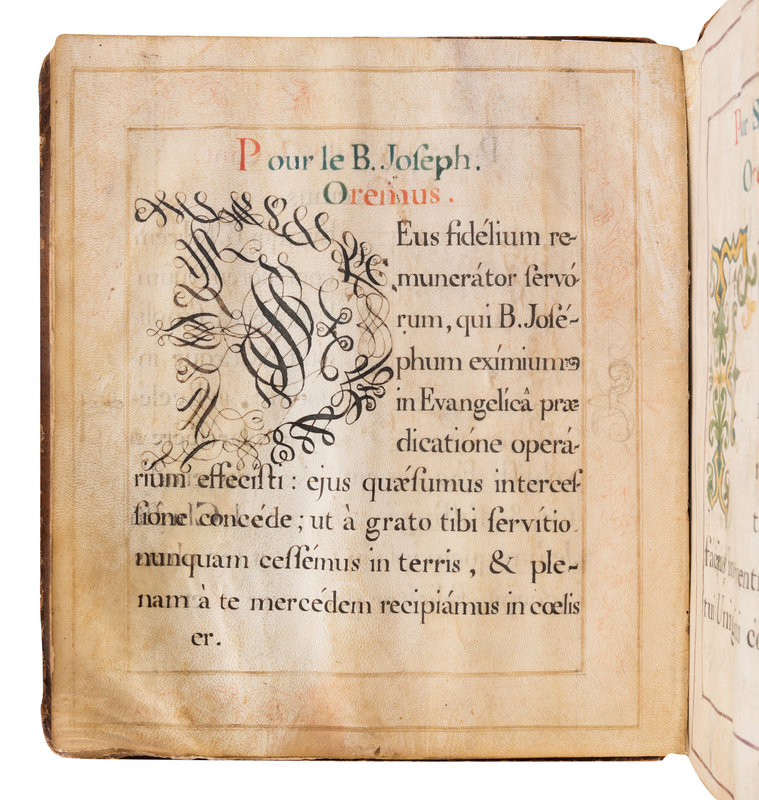 Pour le B. Joſeph.
Oremus.
DEus fidélium re-
munerátor ſervó-
rum, qui B. Joſé-
phum exímium
in Evangelicâ præ
dicatióne operá-
rium effeciſti : ejus quæſumus interceſ
ſióne concéde ; ut à grato tibi ſervítio
nunquam ceſſémus in terris , & ple-
nam à te mercédem recipiámus in cœlis
er.